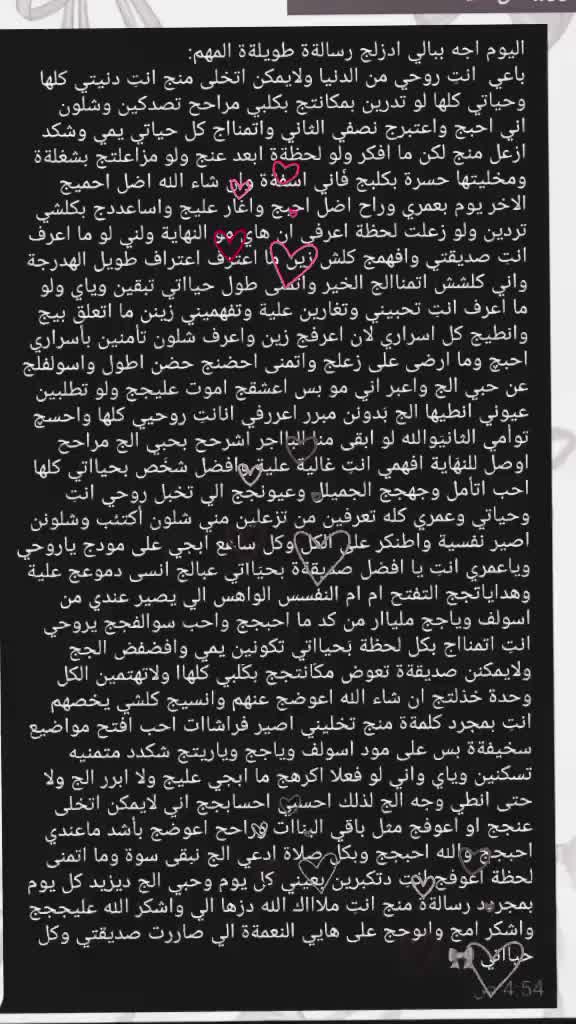 اليوم اجه ببالي ادزلج رسالةة طويلةة المهم:
باعي انتِ روحي من الدنيا ولايمكن اتخلى منج انتِ دنيتي كلها
وحياتي كلها لو تدرين بمكانتج بكلبي مراحح تصدكين وشلون
اني احبج واعتبرج نصفي الثاني واتمنااج كل حياتي يمي وشكد
ازعل منج لكن ما افكر ولو لحظةة ابعد عنج ولو مزاعلتج بشغلةة
ومخليتها حسرة بكلبج فأني اسفةة وان شاء الله اضل احميج
الاخر يوم بعمري وراح اضل احبج واغار عليج واساعددج بكلشي
تردين ولو زعلت لحظة اعرفي ان هاي مو النهاية ولني لو ما اعرف
انتِ صديقتي وافهمج كلش زين ما اعترف اعتراف طويل الهدرجة
واني كلشش اتمناالج الخير واتمنى طول حيااتي تبقين وياي ولو
ما اعرف انتِ تحبيني وتغارين علية وتفهميني زينن ما اتعلق بيج
وانطيج كل اسراري لان اعرفج زين واعرف شلون تأمنين بأسراري
احبج وما ارضى على زعلج واتمنى احضنج حضن اطول واسولفلج
عن حبي الج واعبر اني مو بس اعشقج اموت عليجج ولو تطلبين
عيوني انطيها الج بَدونن مبرر اعررفي انانتِ روحيي كلها واحسج
توأمي الثانيَوالله لو ابقى منا الباجر اشرحح بحبي الج مراحح
اوصل للنهَاية افهمي انتِ غالية علية وافضل شخص بحيااتي كلها
احب اتأمل وجهجج الجميلل وعيونجج الي تخبل روحي انتِ
وحياتي وعمري كله تعرفين من تزعلين مني شلون أكتئب وشلونن
اصير نفسية واطنكر على الكل وكل ساعع ابجي على مودج ياروحي
وياعمري انتِ يا افضل صديقةة بحيَااتي عبالج انسى دموعج علية
وهداياتجج التفتح ام ام النفسس الواهس الي يصير عندي من
اسولف وياجج مليار من كد ما احبجج واحب سوالفجج يروحي
انتِ اتمنااج بكل لحظة بَحيااتي تكونين يمي وافضفض الجج
ولايمكنن صديقةة تعوض مكَانتجج بكَلبي كلهاا ولاتهتمين الكل
وحدة خذلتج ان شاء الله اعوضج عنهم وانسيج كلشي يخصهم
انتِ بمجرد كلمةة منج تخليني اصير فراشاات احب افتح مواضيع
سخيفةة بس على مود اسولف وياجج وياريتج شكدد متمنيه
تسكنين وياي واني لو فعلا اكرهج ما ابجي عليج ولا ابرر الج ولا
حتى انطي وجه الج لذلك احسبي احسابجج اني لايمكن اتخلى
عنجج او اعوفج مثل باقي البناات وراحح اعوضج بأشد ماعندي
احبجج والله احبجج وبكل صلاة ادعي الج نبقى سوة وما اتمنى
لحظة اعوفج انتِ دتكبرين بعيني كل يوم وحبي الج ديزيد كل يوم
بمجرد رسالةة منج انتِ ملاااك الله دزها الي واشكر الله عليججج
واشكر امج وابوحج على هايي النعمةة الي صاررت صديقتي وكل
حيااتي 🎀
4:54 ص